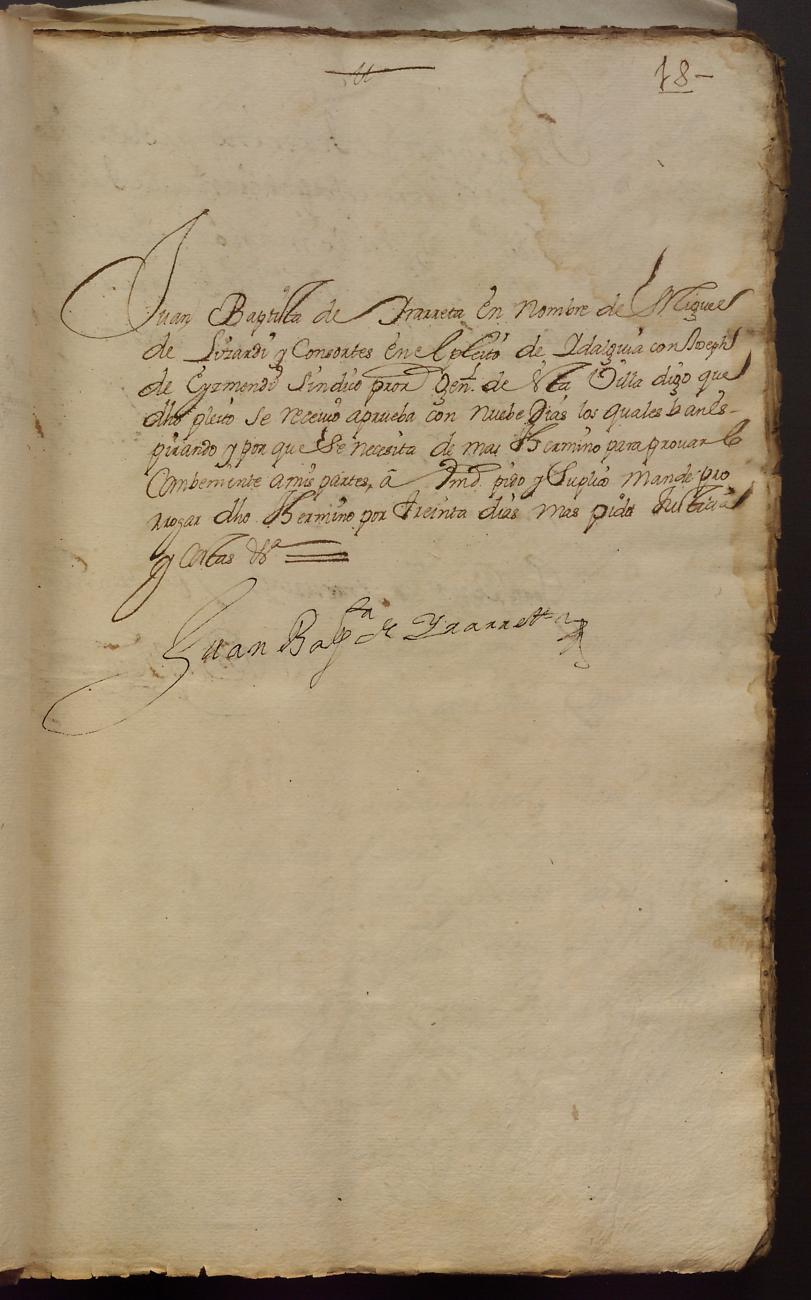 18-
Juan Baptista de Irarreta en nombre de Miguel
de Lizardi y Consortes en el pleito de Idalguia con Joseph
de Eyzmendi Sindico pror Gen.l de esta Villa digo que
dho pleito se receuio aprueba con nuebe Dias los quales ban es-
pirando y por que se necesita de mas thermino para prouar lo
Combeniente a mis partes, a Vmd. pido y Suplico mande pro
rrogar dho thermino por treinta dias mas pido Justicia
y Costas &a
Juan Bap.ta de Yrarreta